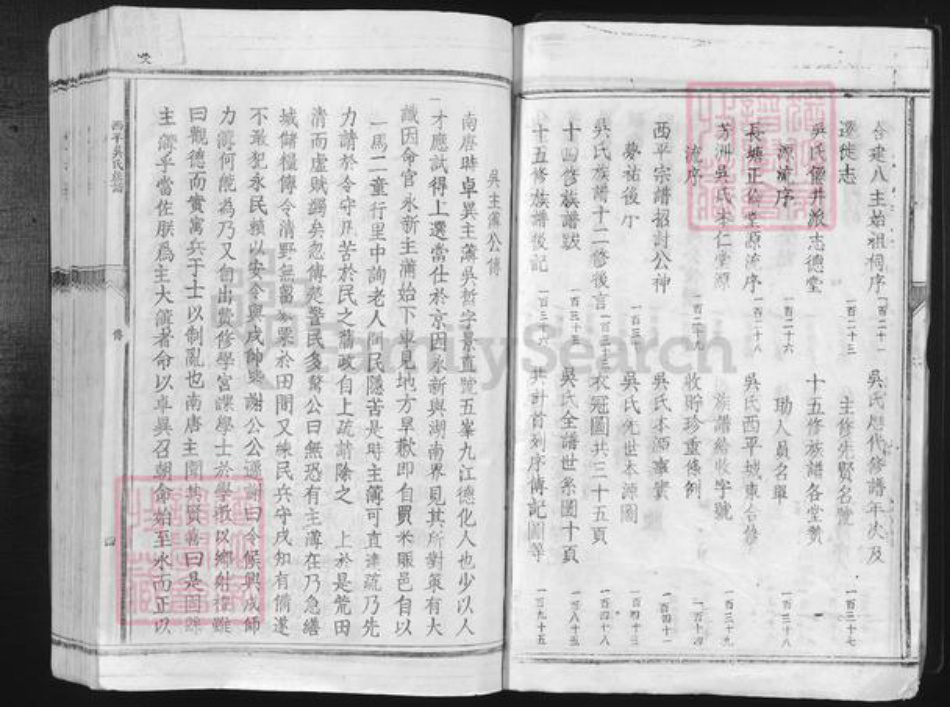 合建八主始祖祠序 一百二十一 吳氏歷代修譜年次及
遷徙志 一百二十三 主修先賢名覽 一百三十七
吳氏價井派志德堂 十五修族譜各堂贊
源流序 一百二十六 助人員名單 一百三十八
長塘正倫堂源流序 一百二十八 吳氏西平城東合修
茅洲吳氏本仁堂源 族譜給收字號 一百三十九
流序 一百二十九 收貯珍重條例
西平宗譜招討公神 吳氏本源事實 一百四十一
夢祐後 吳氏先世本源圖 一百四十三
吳氏族譜十二修後言 一百三十三 衣冠圖共三十五頁 一百四十八
十四修族譜跋 一百三十五 吳氏全譜世系圖十頁 一百八十三
十五修族譜後記 一百三十六 共計首刻序傳記圖等 一百九十五
吳主簿公傳
南唐時卓異主簿吳哲字景直號五峯九江德化人也少以人
才應試得上選當仕於京因永新與湖南界見其所對策有大
識因命官永新主簿始下車見地方旱歉即自買米賑邑自以
一馬二童行里中詢老人問民隱苦是時主簿可直達疏乃先
力請於令守凡苦於民之舊政自上疏請除之 上於是荒田
清而虛賦蠲矣忽傳楚警民多騖公曰無恐有主薄在乃急繕
城儲糧傳令清野無畜米粟於田間又練民兵守戍知有備遂
不敢犯永民賴以安令與戍帥興謝公公遜謝曰令候與戍師
力簿何能為乃又自出貲修學宮課學士於學徹以鄉射禮雖
曰觀德而實寓兵于士以制亂也南唐主聞其賢喜曰是固
主簿乎當佐朕爲主大簿著命以卓異召朝命始至永而正以
西平吳氏族譜
傳
四